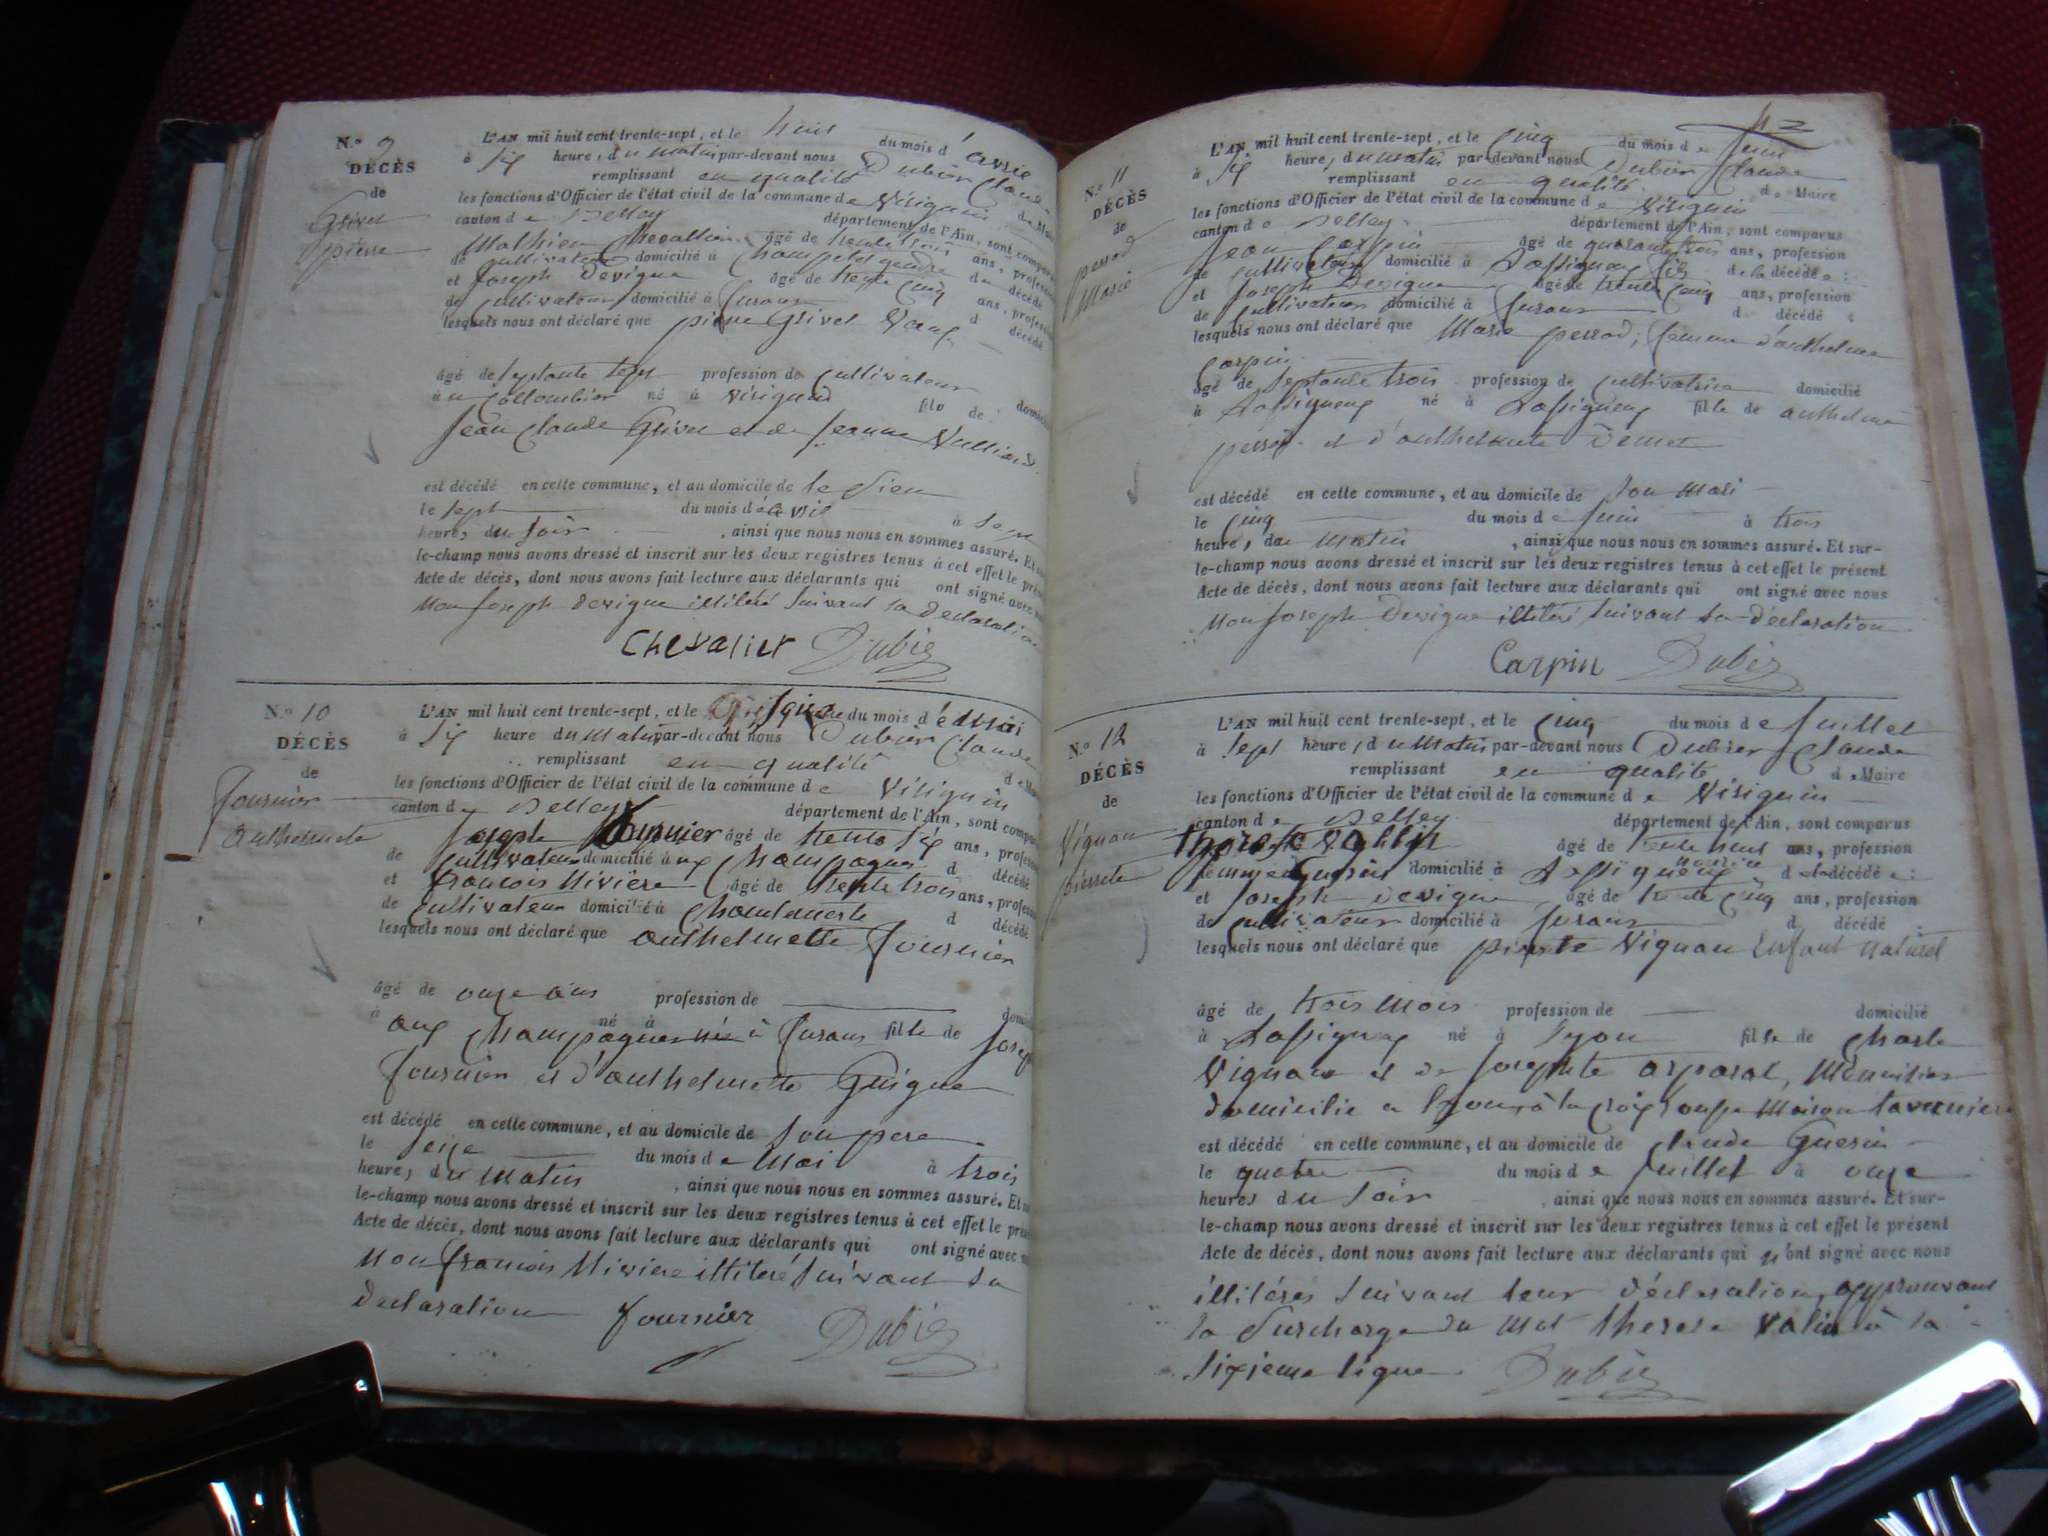 N.° 9
DÉCÈS
de
Grivet
pierre
L'AN mil huit cent trente-sept, et le huit du mois d'avril
à Six heure, du matin par-devant nous Dubier Claude
remplissant en qualité de Maire
les fonctions d'Officier de l'état civil de la commune de Virignin
canton de Belley département de l'Ain, sont comparus
Mathieu Chevallier âgé de trente trois ans, profession
de cultivateur domicilié à gendre du décédé
et Joseph Devigne âgé de trente cinq ans, profession
de cultivateur domicilié à furans d décédé
lesquels nous ont déclaré que pierre Grivet
âgé de septante sept profession de cultivateur domicilié
à né à Virignin fils de
Jean Claude Grivet et de Jeanne Vulliard
est décédé en cette commune, et au domicile de le sien
le sept du mois d'avril à sept
heure, du soir, ainsi que nous nous en sommes assuré. Et sur-
le-champ nous avons dressé et inscrit sur les deux registres tenus à cet effet le présent
Acte de décès, dont nous avons fait lecture aux déclarants qui ont signé avec nous
Non Joseph Devigne illitéré suivant sa déclaration
Chevalier Dubier
N.° 10
DÉCÈS
de
fournier
Anthelmete
L'AN mil huit cent trente-sept, et le du mois de Mai
à Six heure du Matin par-devant nous Dubier Claude
remplissant en qualité de Maire
les fonctions d'Officier de l'état civil de la commune de Virignin
canton de Belley département de l'Ain, sont comparus
Joseph fournier âgé de trente six ans, profession
de cultivateur domicilié à d décédé
et francois Riviere âgé de trente trois ans, profession
de cultivateur domicilié à d décédé
lesquels nous ont déclaré que anthelmette fournier
âgé de onze ans profession de domicilié
à aux Champagne née à furans fille de Joseph
fournier et d'anthelmette Guigue
est décédé en cette commune, et au domicile de son pere
le seize du mois de Mai à trois
heure, du Matin, ainsi que nous nous en sommes assuré. Et sur-
le-champ nous avons dressé et inscrit sur les deux registres tenus à cet effet le présent
Acte de décès, dont nous avons fait lecture aux déclarants qui ont signé avec nous
Non francois Riviere illitéré suivant sa
declaration fournier Dubier
N.° 11
DÉCÈS
de
perrod
Marie
L'AN mil huit cent trente-sept, et le cinq du mois de Juin
à Six heure, du matin par-devant nous Dubier Claude
remplissant en qualité de Maire
les fonctions d'Officier de l'état civil de la commune de Virignin
canton de Belley département de l'Ain, sont comparus
Jean Carpin âgé de quarante trois ans, profession
de cultivateur domicilié à Lassignieu fils de la décédée :
et Joseph Devigne âgé de trente cinq ans, profession
de cultivateur domicilié à furans d décédé
lesquels nous ont déclaré que Marie perrod, femme d'anthelme
Carpin
âgé de septante trois profession de cultivatrice domicilié
à Lassignieu né à Lassignieu fille de anthelme
perrod et d'anthelmette
est décédé en cette commune, et au domicile de son Mari
le cinq du mois de Juin à trois
heure, du Matin, ainsi que nous nous en sommes assuré. Et sur-
le-champ nous avons dressé et inscrit sur les deux registres tenus à cet effet le présent
Acte de décès, dont nous avons fait lecture aux déclarants qui ont signé avec nous
Non Joseph Devigne illitéré suivant sa déclaration
Carpin Dubier
N.° 12
DÉCÈS
de
Vignau
pierrete
L'AN mil huit cent trente-sept, et le cinq du mois de Juillet
à sept heure, du Matin par-devant nous Dubier Claude
remplissant en qualité de Maire
les fonctions d'Officier de l'état civil de la commune de Virignin
canton de Belley département de l'Ain, sont comparus
therese Vallin âgé de trente neuf ans, profession
femme Guerin domicilié à Lassignieu nourrice de la décédée :
et Joseph Devigne âgé de trente cinq ans, profession
de cultivateur domicilié à furans d décédé
lesquels nous ont déclaré que pierrete Vignau Enfant naturel
âgé de trois mois profession de domicilié
à Lassignieu né à Lyon fille de Charle
Vignau et de Josephte
domicilie a Lyon, à la croix rousse Maison tavernier
est décédé en cette commune, et au domicile de Claude Guerin
le quatre du mois de Juillet à onze
heure, du soir, ainsi que nous nous en sommes assuré. Et sur-
le-champ nous avons dressé et inscrit sur les deux registres tenus à cet effet le présent
Acte de décès, dont nous avons fait lecture aux déclarants qui n'ont signé avec nous
illitéres suivant leur déclaration, approuvant
la surcharge du mot therese Valin à la
sixieme ligne Dubier